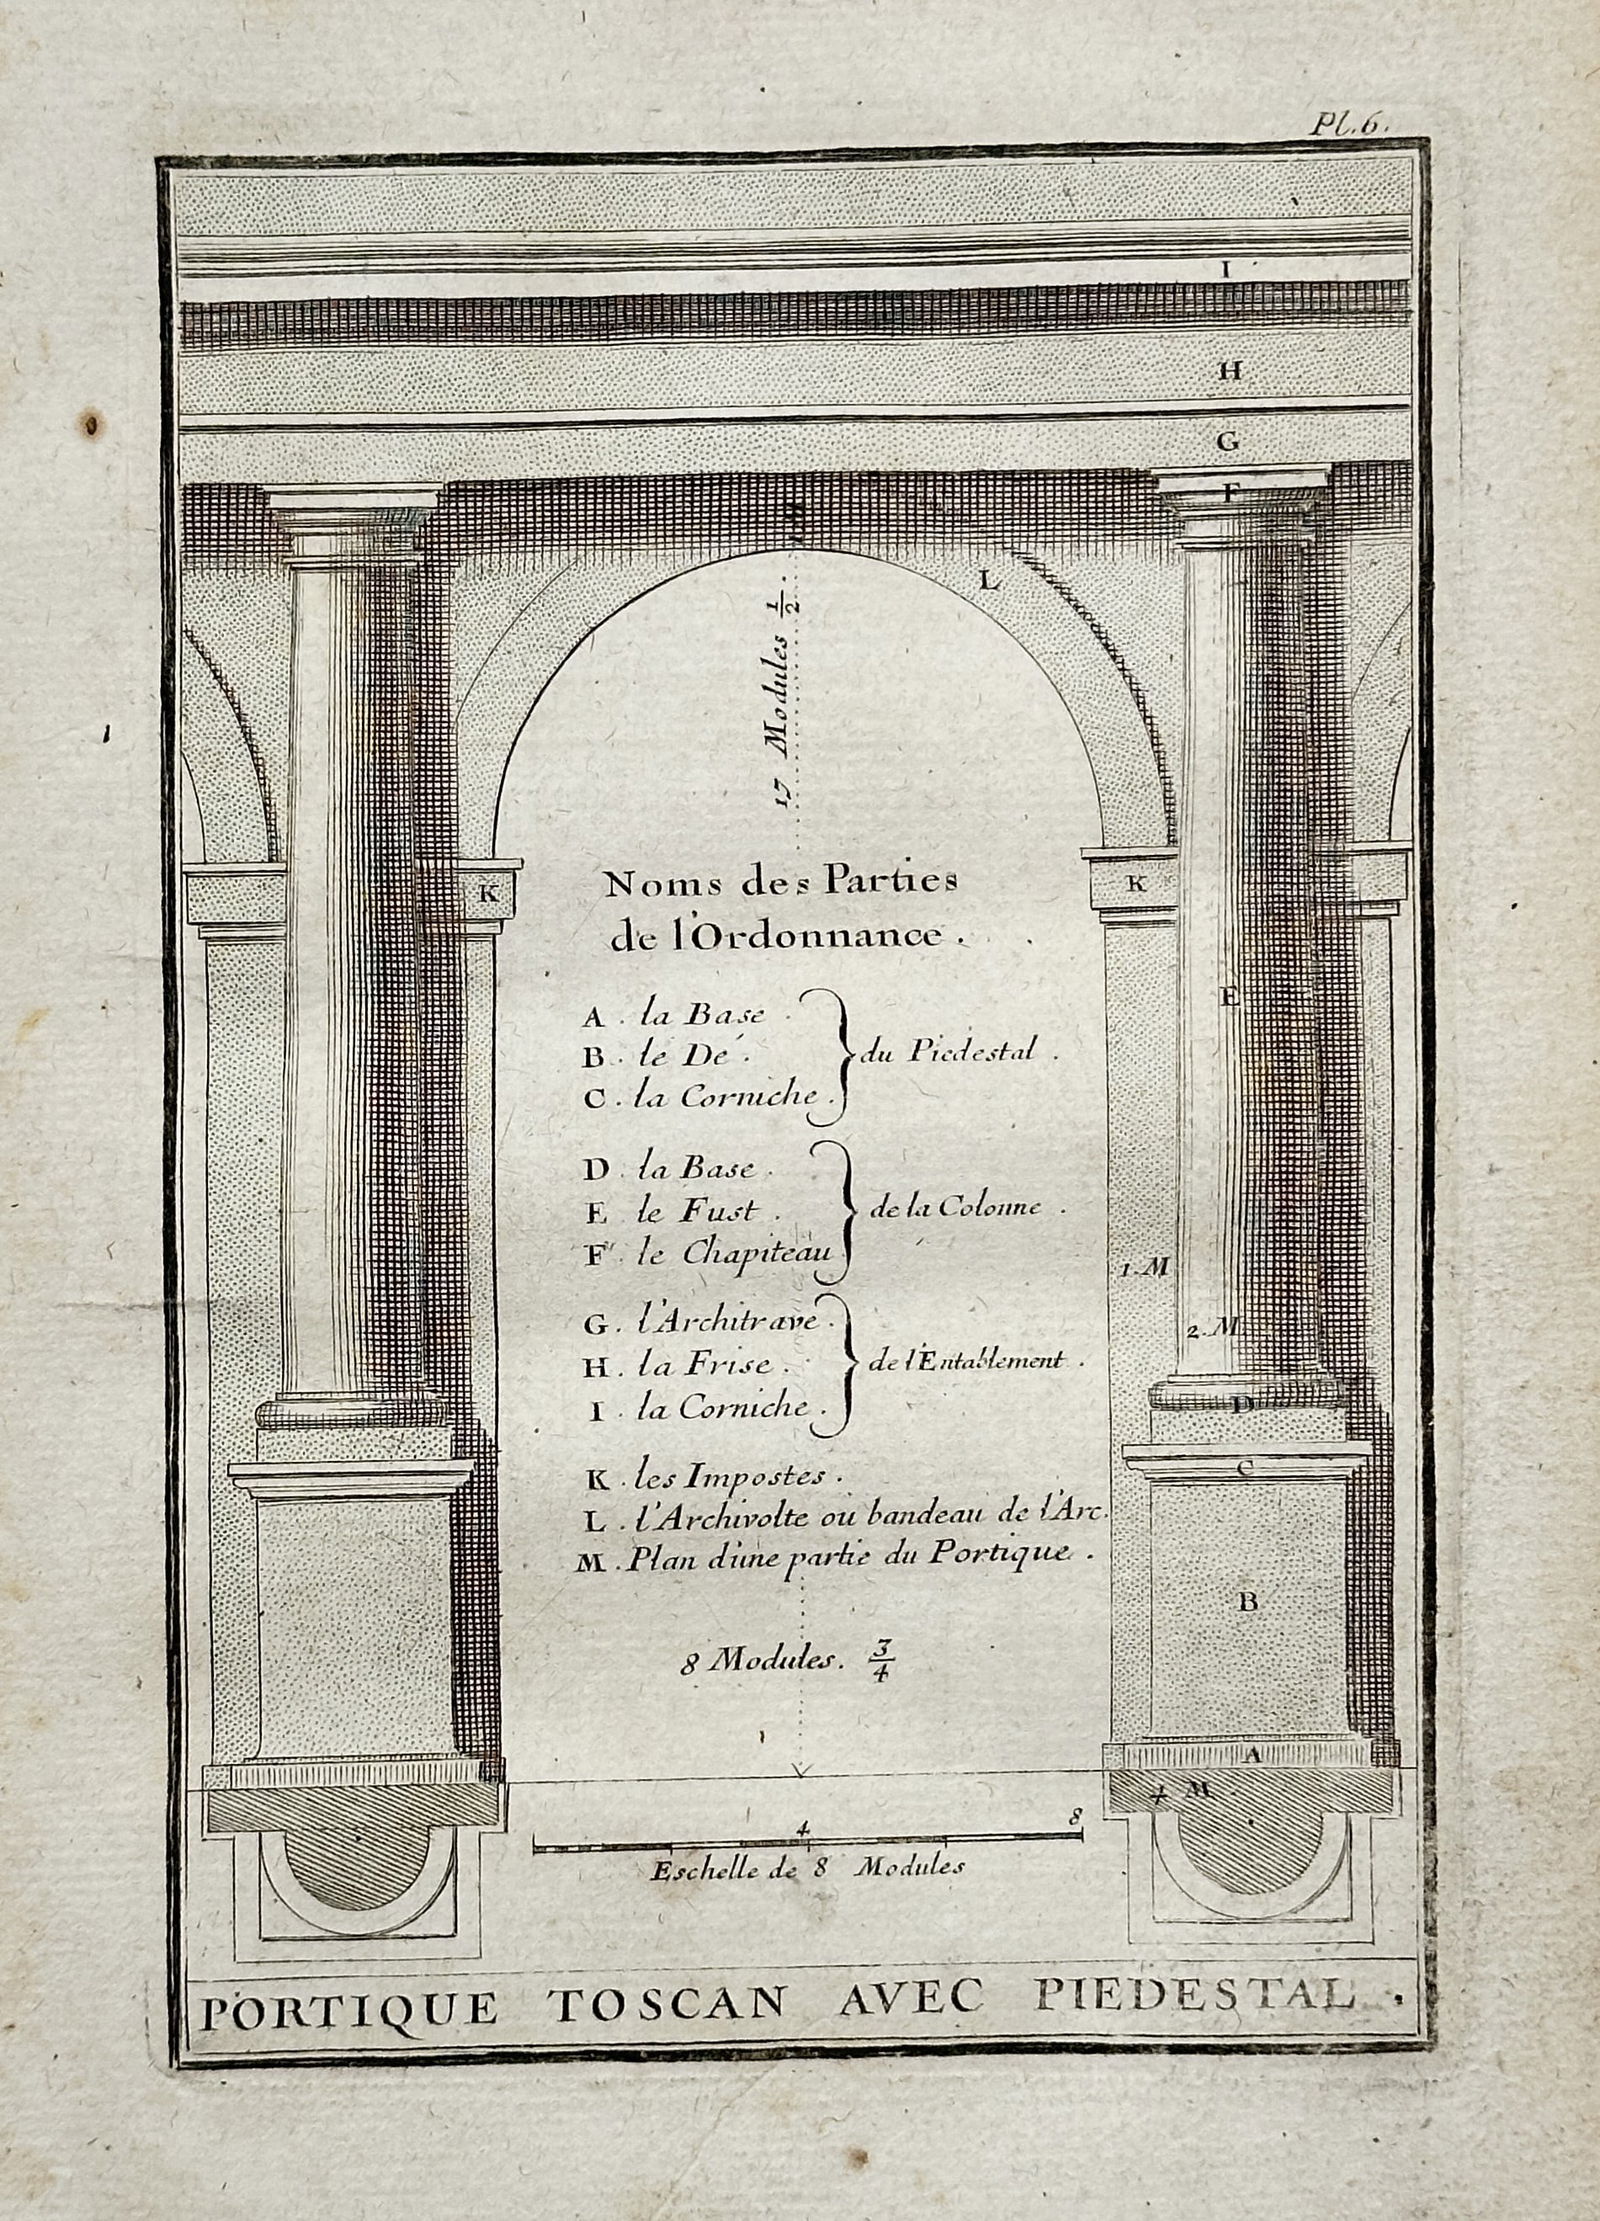 Pl.6.
I
H
G
F
L
17 Modules 1/2.
K
K
Noms des Parties
de l'Ordonnance.
E
A. la Base.
B. le Dé.
C. la Corniche.
du Piedestal.
D. la Base.
E le Fust.
F. le Chapiteau
de la Colonne.
G. l'Architrave.
H. la Frise.
I. la Corniche.
de l'Entablement.
1. M
2. M
D
C
K. les Impostes.
L. l'Archivolte ou bandeau de l'Arc.
M. Plan d'une partie du Portique.
B
8 Modules. 3/4
A
4 M.
4
8
Eschelle de 8 Modules
PORTIQUE TOSCAN AVEC PIEDESTAL.